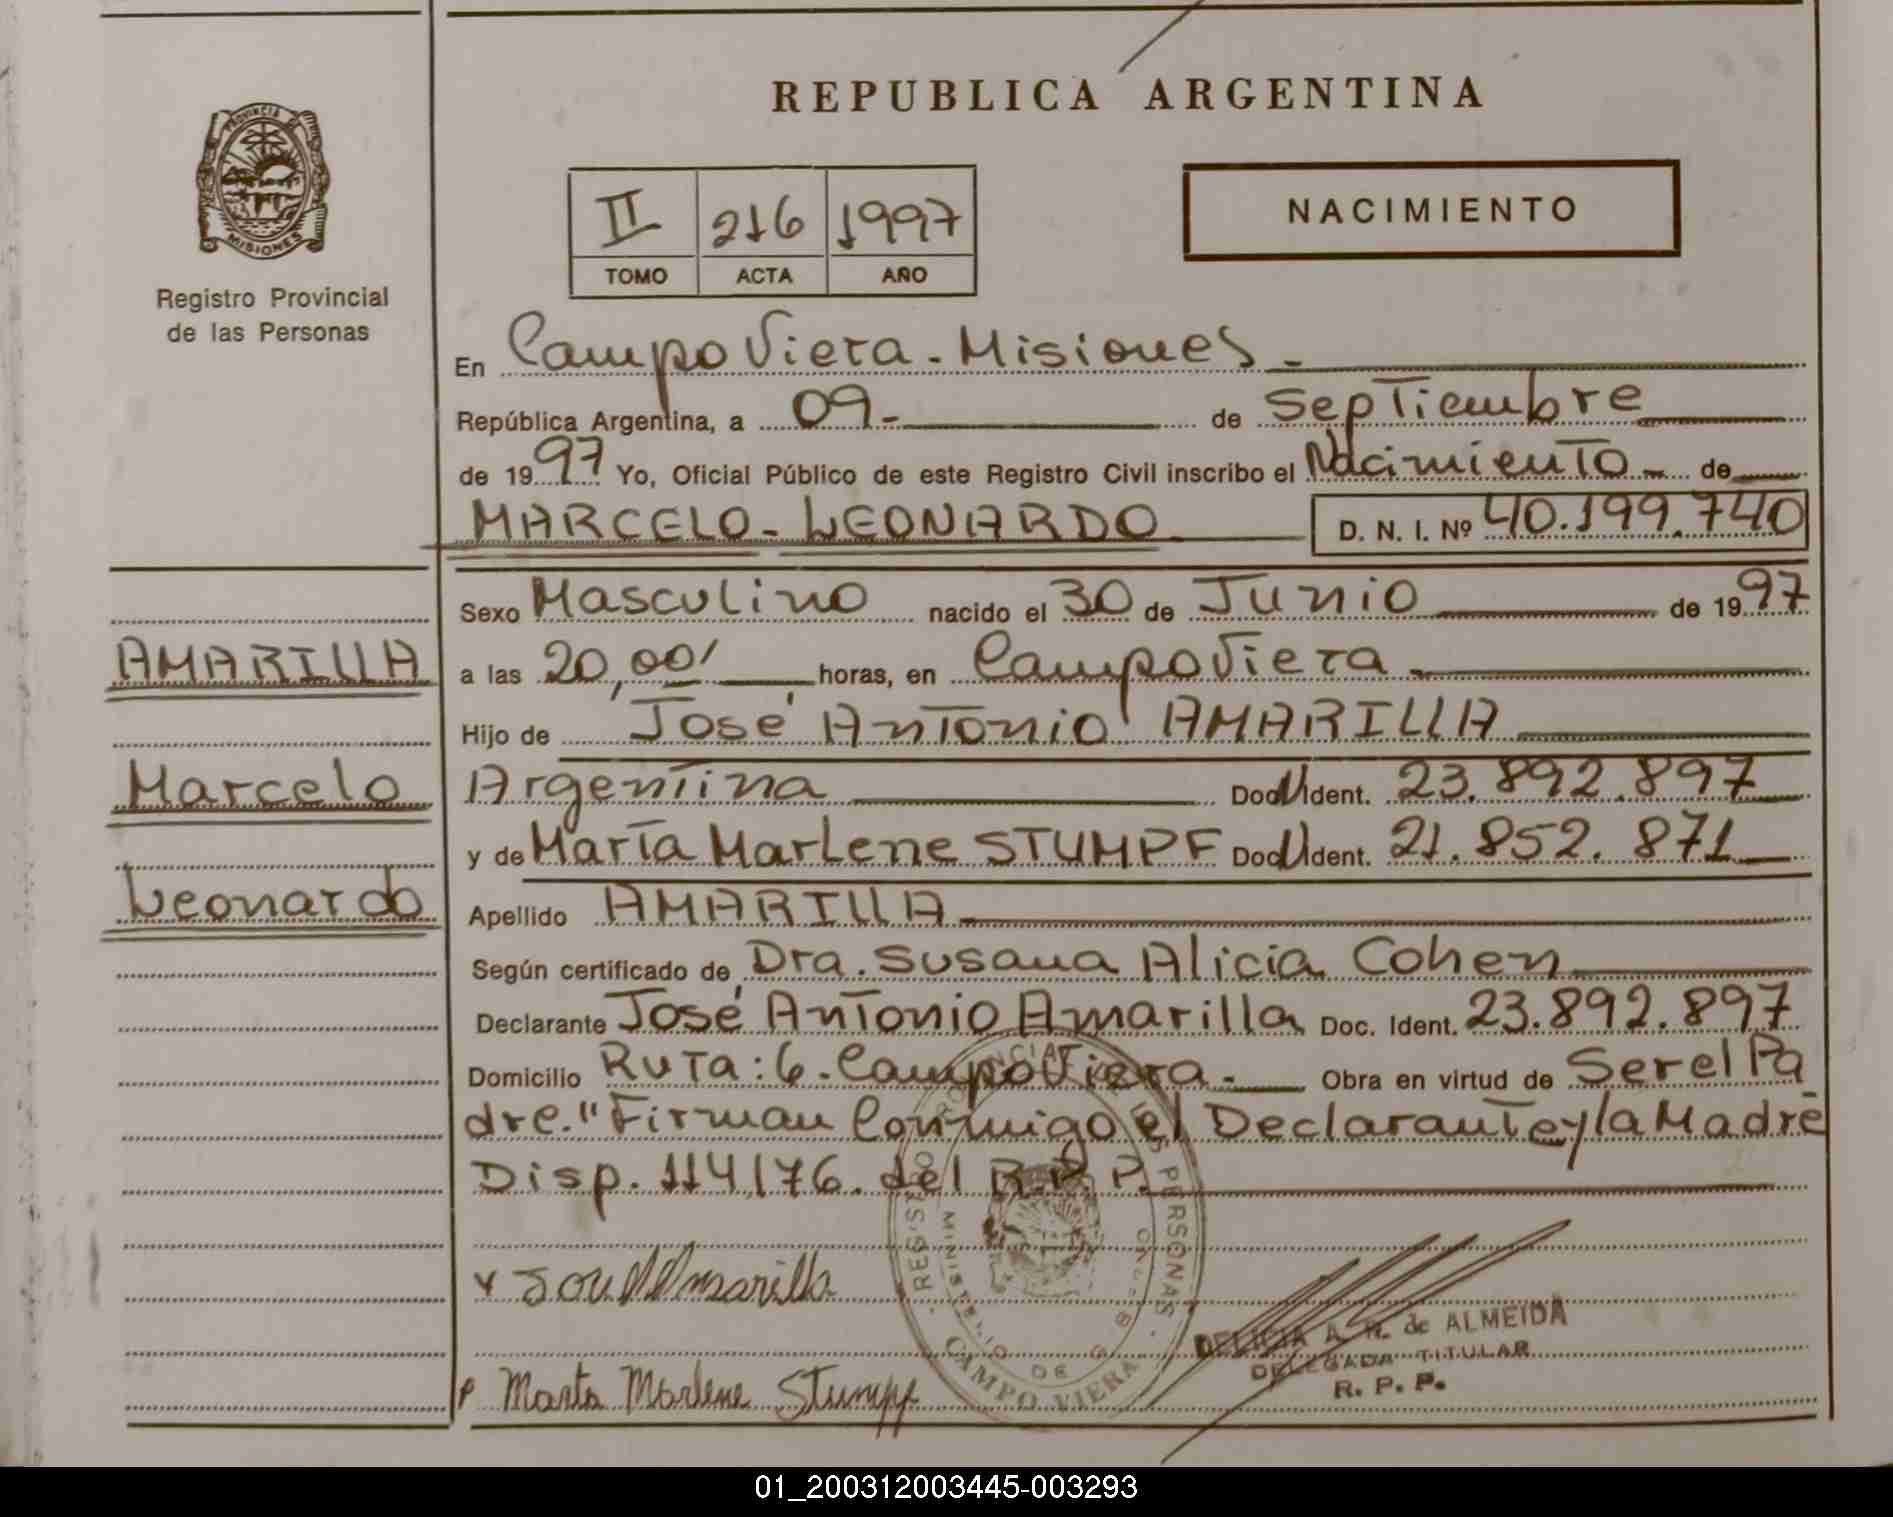 REPUBLICA ARGENTINA
PROVINCIA DE
MISIONES
Registro Provincial
de las Personas
II 216 1997
TOMO ACTA AÑO
NACIMIENTO
En Campo Viera - Misiones -
República Argentina, a 09- de Septiembre
de 1997 Yo, Oficial Público de este Registro Civil inscribo el Nacimiento - de
MARCELO - LEONARDO D. N. I. Nº 40.199.740
AMARILLA
Marcelo
Leonardo
Sexo Masculino nacido el 30 de Junio de 1997
a las 20,00' horas, en Campo Viera -
Hijo de José Antonio AMARILLA
Argentina Doc. Ident. 23.892.897
y de Marta Marlene STUMPF Doc. Ident. 21.852.871
Apellido AMARILLA
Según certificado de Dra. Susana Alicia Cohen
Declarante José Antonio Amarilla Doc. Ident. 23.892.897
Domicilio Ruta: 6 - Campo Viera - Obra en virtud de Ser el Pa
dre." Firman Conmigo el Declarante y la Madre
Disp. 114/76. del R.P.P.
José A Amarilla
Marta Marlene Stumpf
REGISTRO PROVINCIAL DE LAS PERSONAS
MINISTERIO DE GOB
CAMPO VIERA
DELICIA A. N. de ALMEIDA
DELEGADA TITULAR
R. P. P.
01_200312003445-003293